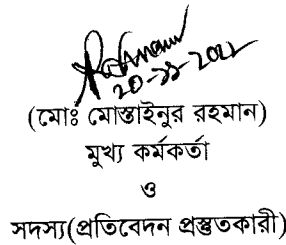 Rahman
20-12-2022
(মোঃ মোস্তাইনুর রহমান)
মুখ্য কর্মকর্তা
ও
সদস্য(প্রতিবেদন প্রস্তুতকারী)